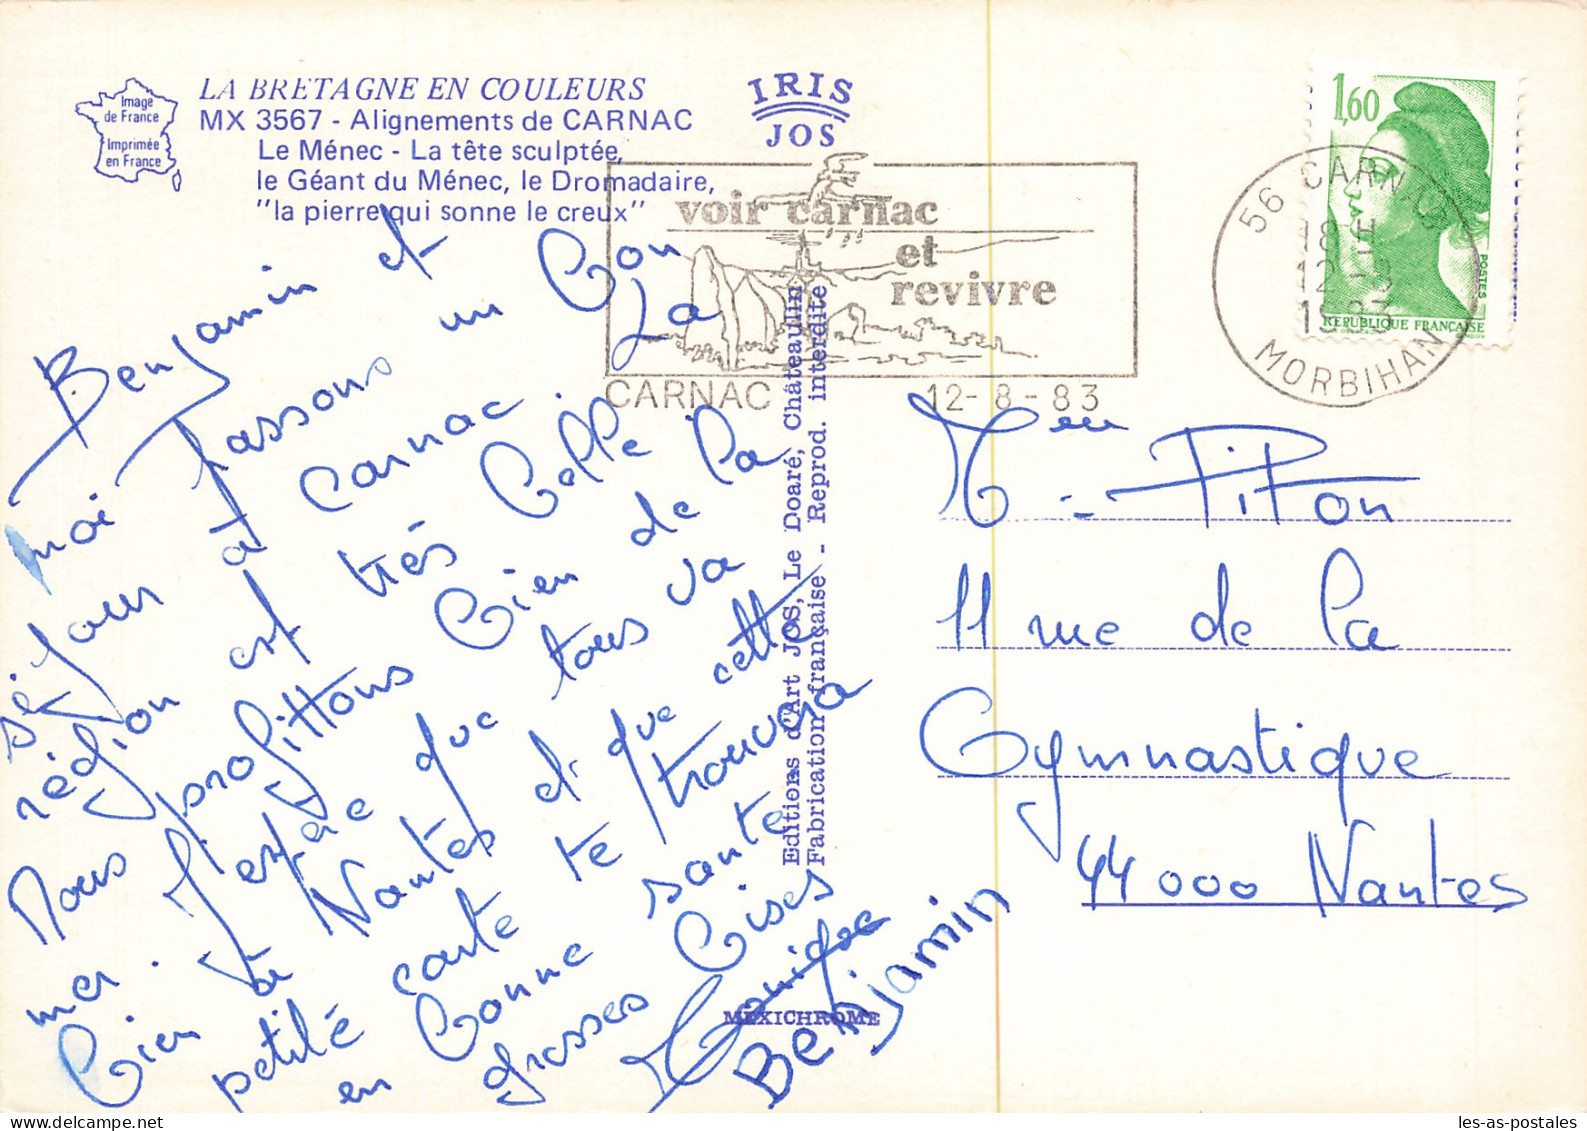 Image
de France
Imprimée
en France
LA BRETAGNE EN COULEURS
MX 3567 - Alignements de CARNAC
Le Ménec - La tête sculptée,
le Géant du Ménec, le Dromadaire,
"la pierre qui sonne le creux"
IRIS
JOS
voir carnac
et
revivre
CARNAC 12-8-83
56 CARNAC
18 H
12-8
1983
MORBIHAN
1,60
POSTES
REPUBLIQUE FRANÇAISE
Benjamin et
moi passons un bon
séjour à Carnac. La
région est très belle.
Nous profittons bien de la
mer. J'espère que tous va
bien à Nantes et que cette
petite carte te trouvera
en bonne santé
grosses bises
Monique
Benjamin
Editions d'Art JOS, Le Doaré, Châteaulin
Fabrication française - Reprod. interdite
MEXICHROME
Mme Piton
11 rue de la
Gymnastique
44000 Nantes
les-as-postales